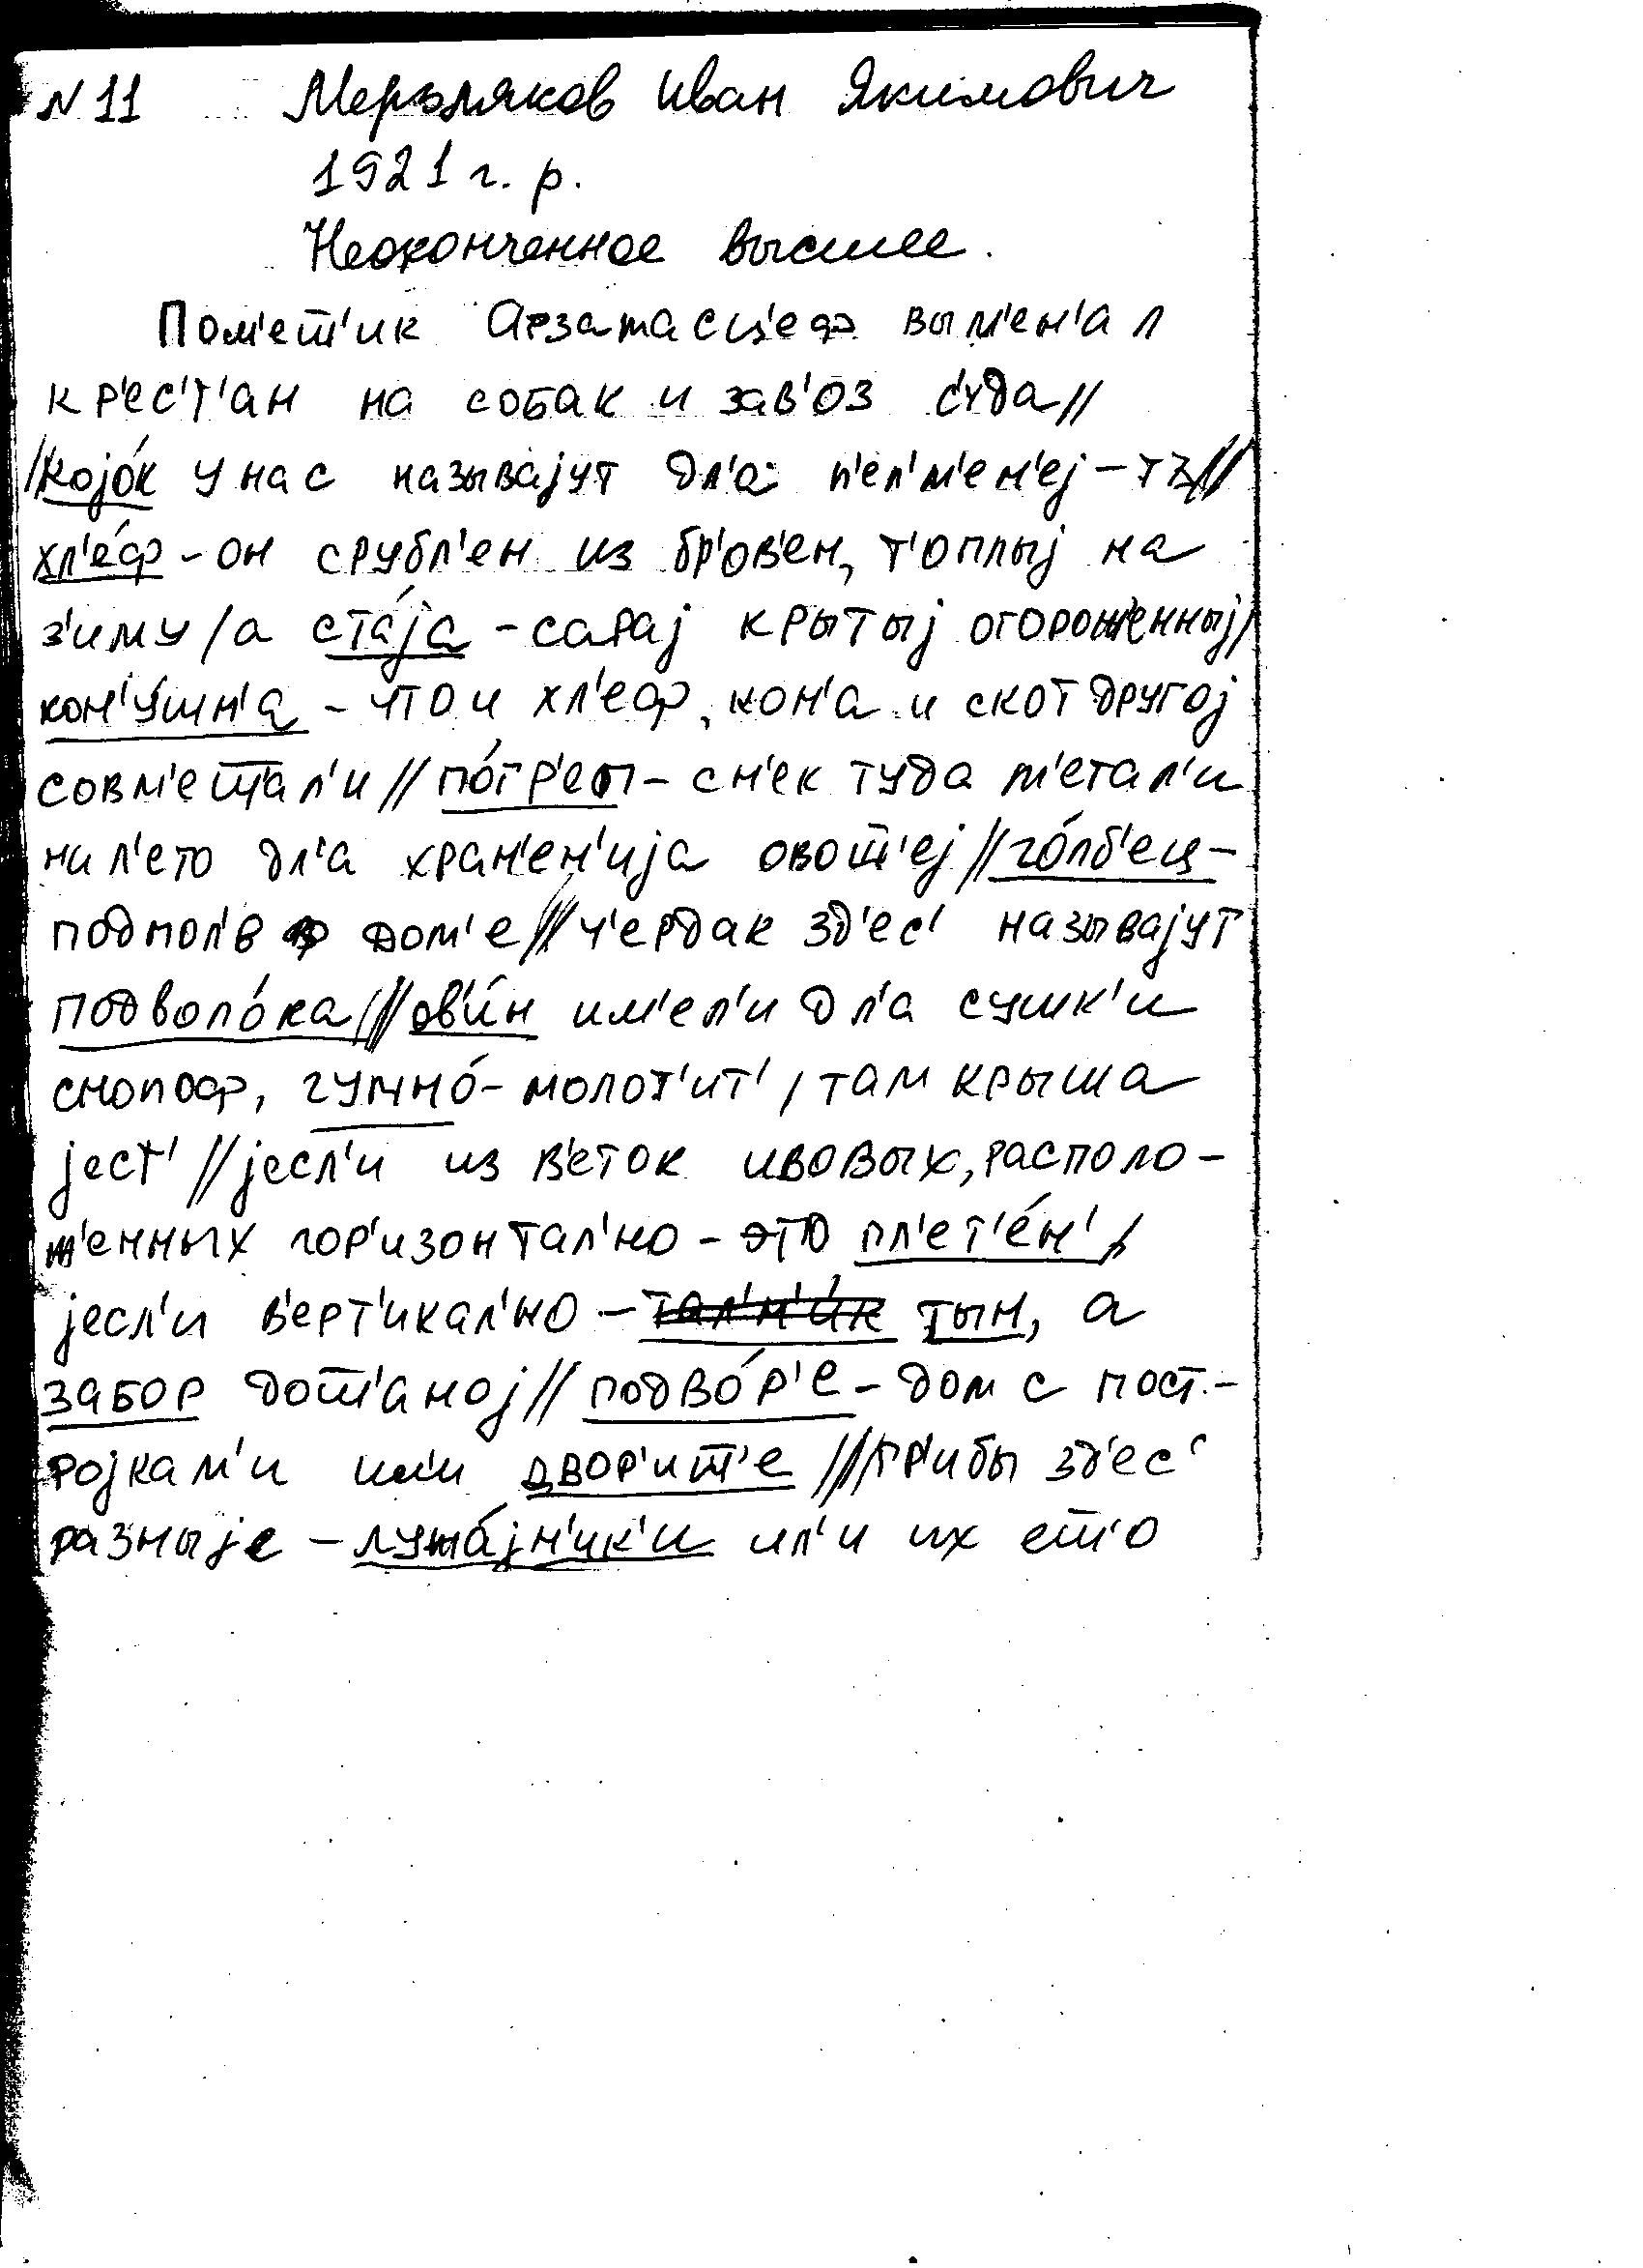 N 11 Мерзляков Иван Якимович
1921 г. р.
Неоконченное высшее.
Пом'еш̅'ик Арзамасцеф вым'ен'ал
кр'ес'т'ан на собак и зав'оз с'уда//
/коjо́к у нас называjут дл'а п'ел'м'ен'еj–тэ//
хл'е́ф – он срубл'ен из бр'ов'ен, т'оплыj на
з'иму / а ста́jа – сараj крытыj огорож'енныj/
кон'у́шн'а – что и хл'еф, кон'а и скот другоj
совм'еш̅ал'и // по́гр'еп – сн'ек туда м'етал'и
на л'ето дл'а хран'ен'иjа овош̅'еj // го́лб'ец –
подпол'в дом'е // ч'ердак зд'ес' называjут
подволо́ка // ов'и́н им'ел'и дл'а сушк'и
снопоф, гумно́ – молот'ит', там крыша
jест' // jесл'и из в'еток ивовых, располо-
ж'енных гор'изонтал'но – это пл'ет'е́н',
jесл'и в'ерт'икал'но – тал'н'и́к тын, а
забор дош̅'аноj // подво́р'е – дом с пост-
роjкам'и или двор'иш̅'е /// гр'ибы зд'ес'
разныjе – лужа́jн'ик'и ил'и их еш̅'о